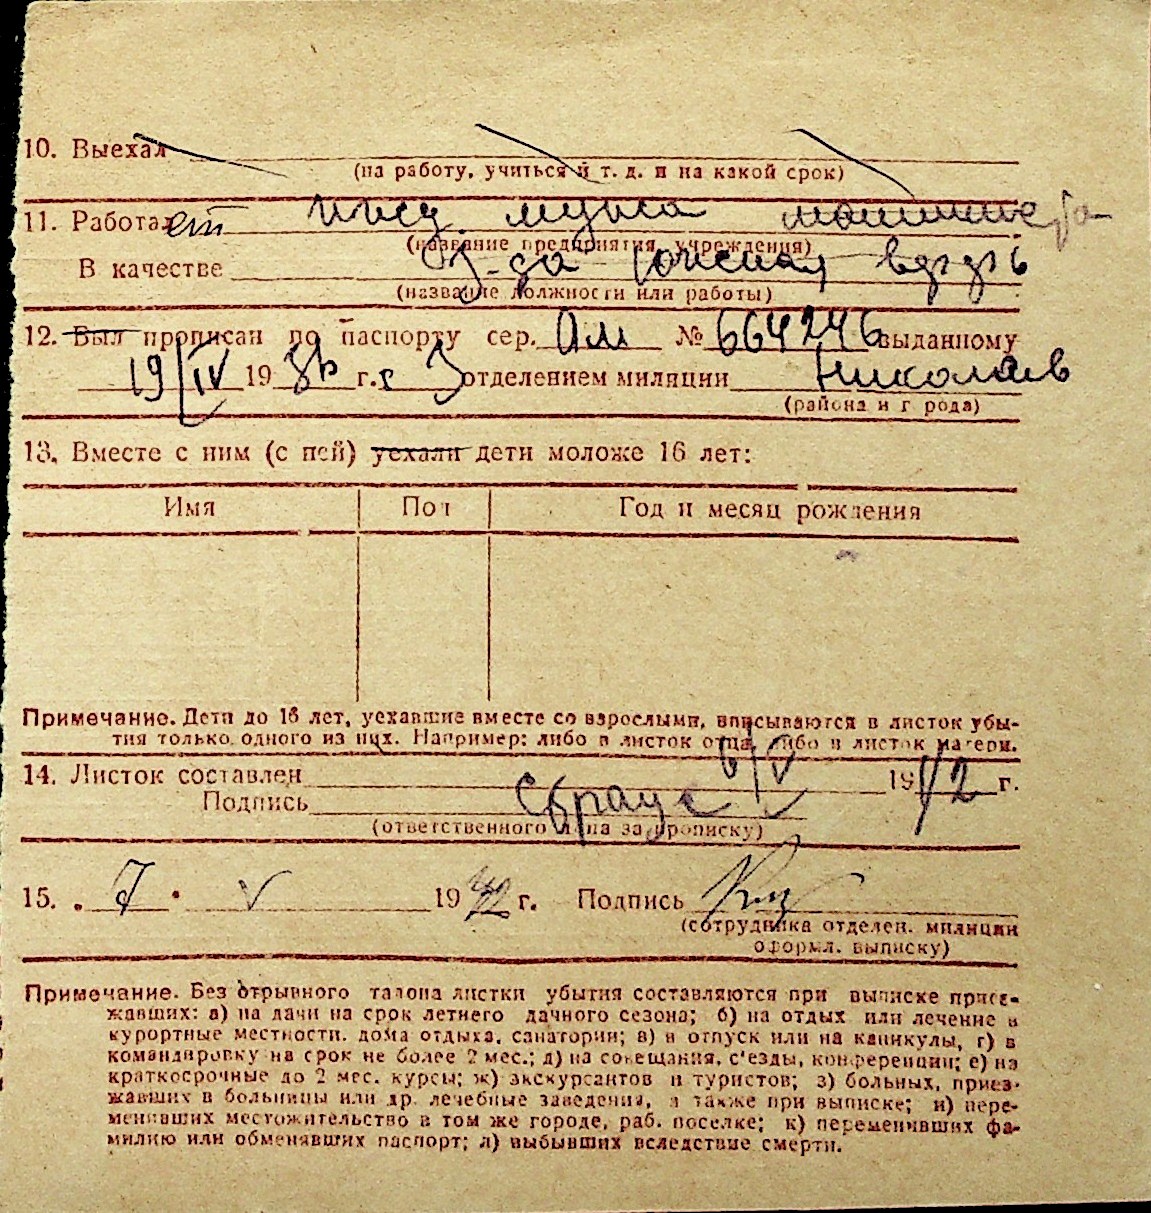 10. Выехал
(на работу, учиться и т. д. и на какой срок)
11. Работает
(название предприятия, учреждения)
В качестве
(название должности или работы)
12. Был прописан по паспорту сер. АМ № 664246 выданному
19/IV 19 г. с 3 отделением милиции Николаев
(района и города)
13. Вместе с ним (с ней) уехали дети моложе 16 лет:
Имя Пол Год и месяц рождения
Примечание. Дети до 16 лет, уехавшие вместе со взрослыми, вписываются в листок убы-
тия только одного из них. Например: либо в листок отца, либо в листок матери.
14. Листок составлен 6/V 1942 г.
Подпись
(ответственного лица за прописку)
15. „ 7 " V 1942 г. Подпись
(сотрудника отделен. милиции
оформл. выписку)
Примечание. Без отрывного талона листки убытия составляются при выписке приез-
жавших: а) на дачи на срок летнего дачного сезона; б) на отдых или лечение в
курортные местности, дома отдыха, санатории; в) в отпуск или на каникулы, г) в
командировку на срок не более 2 мес.; д) на совещания, с'езды, конференции; е) на
краткосрочные до 2 мес. курсы; ж) экскурсантов и туристов; з) больных, приез-
жавших в больницы или др. лечебные заведения, а также при выписке; и) пере-
менивших местожительство в том же городе, раб. поселке; к) переменивших фа-
милию или обменявших паспорт; л) выбывших вследствие смерти.